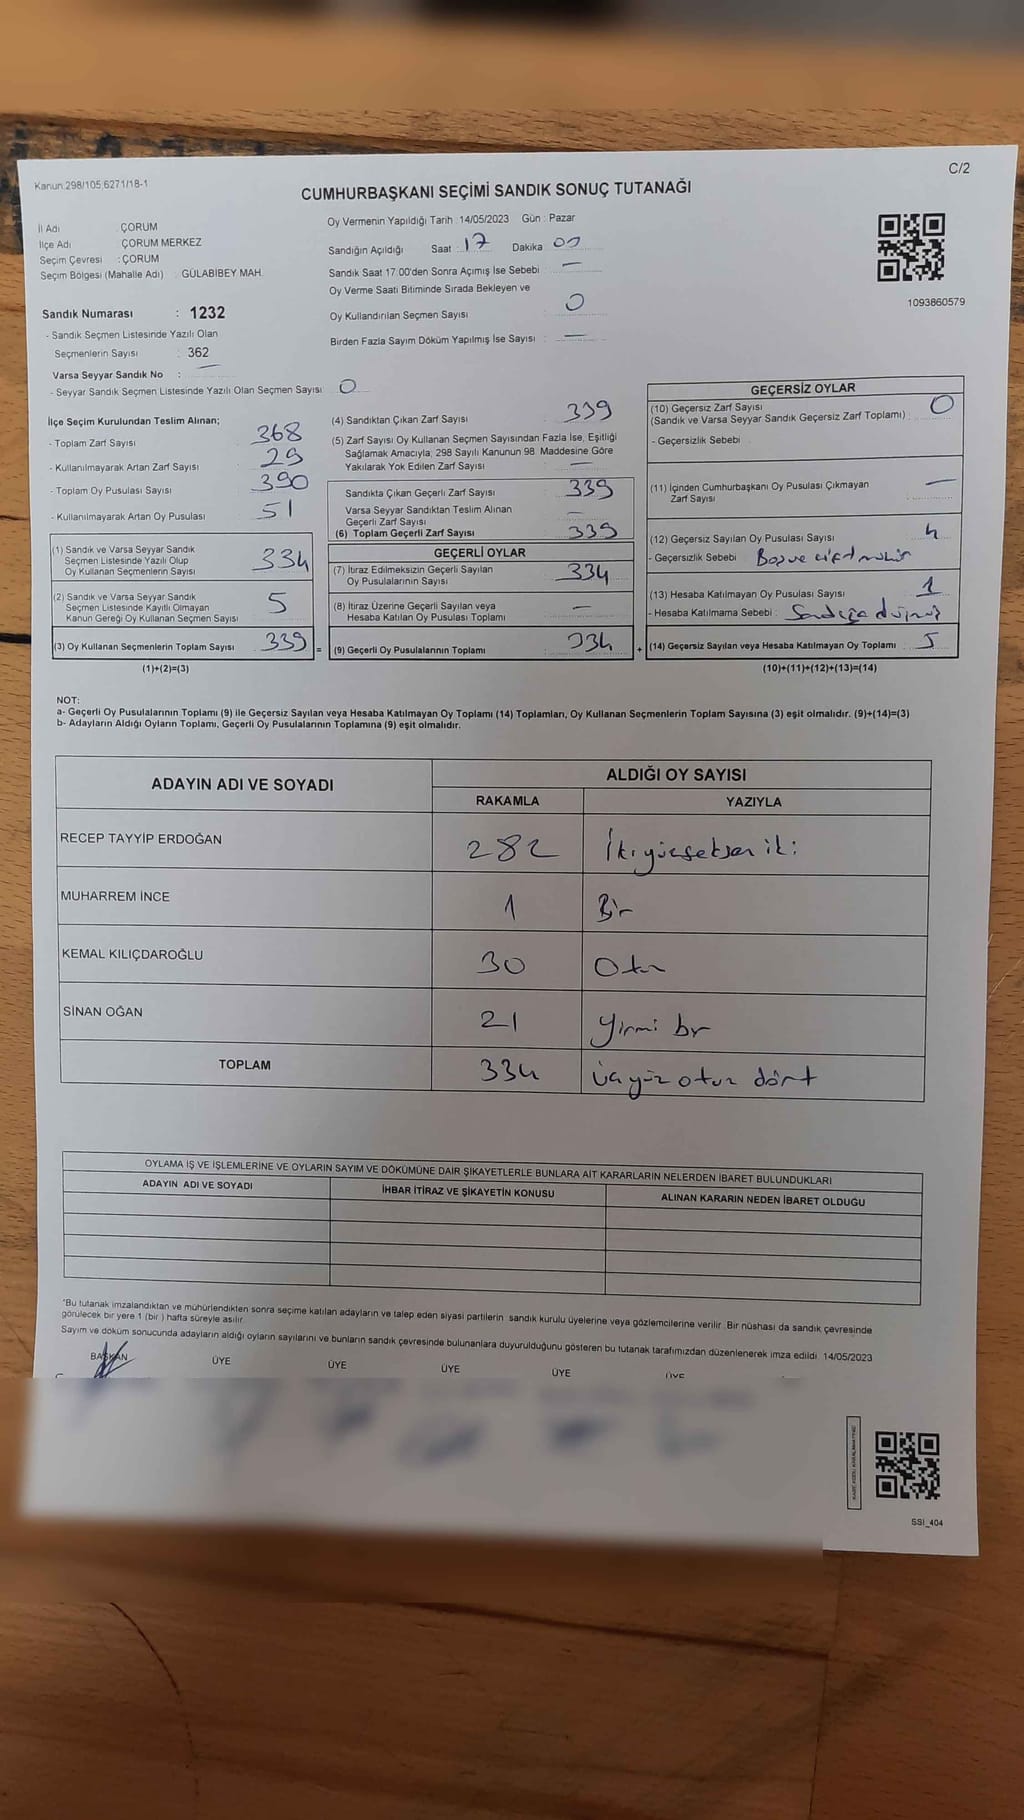 Kanun.298/105;6271/18-1
C/2
CUMHURBAŞKANI SEÇİMİ SANDIK SONUÇ TUTANAĞI
İl Adı : ÇORUM
İlçe Adı : ÇORUM MERKEZ
Seçim Çevresi : ÇORUM
Seçim Bölgesi (Mahalle Adı) : GÜLABİBEY MAH.
Sandık Numarası : 1232
- Sandık Seçmen Listesinde Yazılı Olan
Seçmenlerin Sayısı : 362
Varsa Seyyar Sandık No : —
- Seyyar Sandık Seçmen Listesinde Yazılı Olan Seçmen Sayısı : 0
Oy Vermenin Yapıldığı Tarih : 14/05/2023 Gün : Pazar
Sandığın Açıldığı Saat : 17 Dakika : 00
Sandık Saat 17.00'den Sonra Açımış İse Sebebi : —
Oy Verme Saati Bitiminde Sırada Bekleyen ve
Oy Kullandırılan Seçmen Sayısı : 0
Birden Fazla Sayım Döküm Yapılmış İse Sayısı : —
1093860579
İlçe Seçim Kurulundan Teslim Alınan;
- Toplam Zarf Sayısı : 368
- Kullanılmayarak Artan Zarf Sayısı : 29
- Toplam Oy Pusulası Sayısı : 390
- Kullanılmayarak Artan Oy Pusulası : 51
(1) Sandık ve Varsa Seyyar Sandık
Seçmen Listesinde Yazılı Olup
Oy Kullanan Seçmenlerin Sayısı : 334
(2) Sandık ve Varsa Seyyar Sandık
Seçmen Listesinde Kayıtlı Olmayan
Kanun Gereği Oy Kullanan Seçmen Sayısı : 5
(3) Oy Kullanan Seçmenlerin Toplam Sayısı : 339 =
(1)+(2)=(3)
(4) Sandıktan Çıkan Zarf Sayısı : 339
(5) Zarf Sayısı Oy Kullanan Seçmen Sayısından Fazla İse, Eşitliği
Sağlamak Amacıyla; 298 Sayılı Kanunun 98. Maddesine Göre
Yakılarak Yok Edilen Zarf Sayısı : —
Sandıkta Çıkan Geçerli Zarf Sayısı : 339
Varsa Seyyar Sandıktan Teslim Alınan
Geçerli Zarf Sayısı : —
(6) Toplam Geçerli Zarf Sayısı : 339
GEÇERLİ OYLAR
(7) İtiraz Edilmeksizin Geçerli Sayılan
Oy Pusulalarının Sayısı : 334
(8) İtiraz Üzerine Geçerli Sayılan veya
Hesaba Katılan Oy Pusulası Toplamı : —
(9) Geçerli Oy Pusulalarının Toplamı : 334 +
GEÇERSİZ OYLAR
(10) Geçersiz Zarf Sayısı
(Sandık ve Varsa Seyyar Sandık Geçersiz Zarf Toplamı) : 0
- Geçersizlik Sebebi :
(11) İçinden Cumhurbaşkanı Oy Pusulası Çıkmayan
Zarf Sayısı : —
(12) Geçersiz Sayılan Oy Pusulası Sayısı : 4
- Geçersizlik Sebebi : Boş ve çift mühür
(13) Hesaba Katılmayan Oy Pusulası Sayısı : 1
- Hesaba Katılmama Sebebi : Sandığa
(14) Geçersiz Sayılan veya Hesaba Katılmayan Oy Toplamı : 5
(10)+(11)+(12)+(13)=(14)
NOT:
a- Geçerli Oy Pusulalarının Toplamı (9) ile Geçersiz Sayılan veya Hesaba Katılmayan Oy Toplamı (14) Toplamları, Oy Kullanan Seçmenlerin Toplam Sayısına (3) eşit olmalıdır. (9)+(14)=(3)
b- Adayların Aldığı Oyların Toplamı, Geçerli Oy Pusulalarının Toplamına (9) eşit olmalıdır.
ADAYIN ADI VE SOYADI
ALDIĞI OY SAYISI
RAKAMLA YAZIYLA
RECEP TAYYİP ERDOĞAN 282 İkiyüzseksen iki
MUHARREM İNCE 1 Bir
KEMAL KILIÇDAROĞLU 30 Otuz
SİNAN OĞAN 21 yirmi bir
TOPLAM 334 üçyüz otuz dört
OYLAMA İŞ VE İŞLEMLERİNE VE OYLARIN SAYIM VE DÖKÜMÜNE DAİR ŞİKAYETLERLE BUNLARA AİT KARARLARIN NELERDEN İBARET BULUNDUKLARI
ADAYIN ADI VE SOYADI İHBAR İTİRAZ VE ŞİKAYETİN KONUSU ALINAN KARARIN NEDEN İBARET OLDUĞU
*Bu tutanak imzalandıktan ve mühürlendikten sonra seçime katılan adayların ve talep eden siyasi partilerin sandık kurulu üyelerine veya gözlemcilerine verilir. Bir nüshası da sandık çevresinde
görülecek bir yere 1 (bir ) hafta süreyle asılır.
Sayım ve döküm sonucunda adayların aldığı oyların sayılarını ve bunların sandık çevresinde bulunanlara duyurulduğunu gösteren bu tutanak tarafımızdan düzenlenerek imza edildi. 14/05/2023
BAŞKAN ÜYE ÜYE ÜYE ÜYE ÜYE
SSI_404